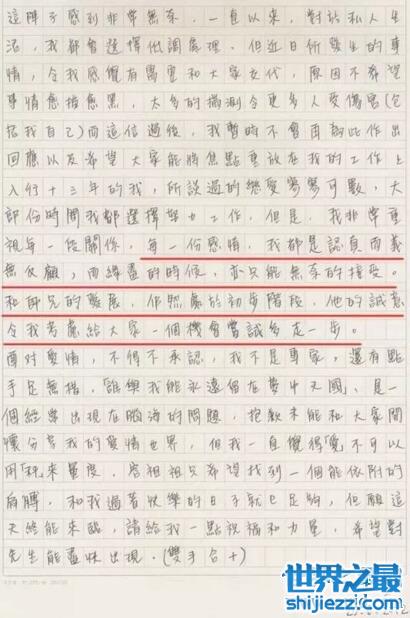 這陣子感到非常無奈,一直以來,對於私人生
活,我都會選擇低調處理。但近日所發生的事
情,令我感覺有需要和大家交代,原因不希望
事情愈描愈黑,太多的揣測令更多人受傷害(包
括我自己)而這信過後,我暫時不會再對此作出
回應以及希望大家能將焦點重放在我的工作上
入行十三年的我,所談過的戀愛寥寥可數,大
部份時間我都選擇努力工作。但是,我非常重
視每一段關係,每一份感情,我都是認真而義
無反顧,而緣盡的時候,亦只能無奈的接受。
和師兄的發展,仍然處於初步階段,他的誠意
令我考慮給大家一個機會嘗試多走一步。
面對愛情,不得不承認,我不是專家,還有點
手足無措,「誰與我能永遠留在夢中天國」是一
個經常出現在腦海的問題,抱歉未能和大家開
懷分享我的愛情世界,但我一直覺得「愛」不可以
用「秤」來量度,容祖祖只希望找到一個能依附的
肩膊,和我過著快樂的日子就已足夠,但願這
天終能來臨,請給我一點祝福和力量,希望對
先生能盡快出現。(雙手合十)
世界之最
shijiezzi.com